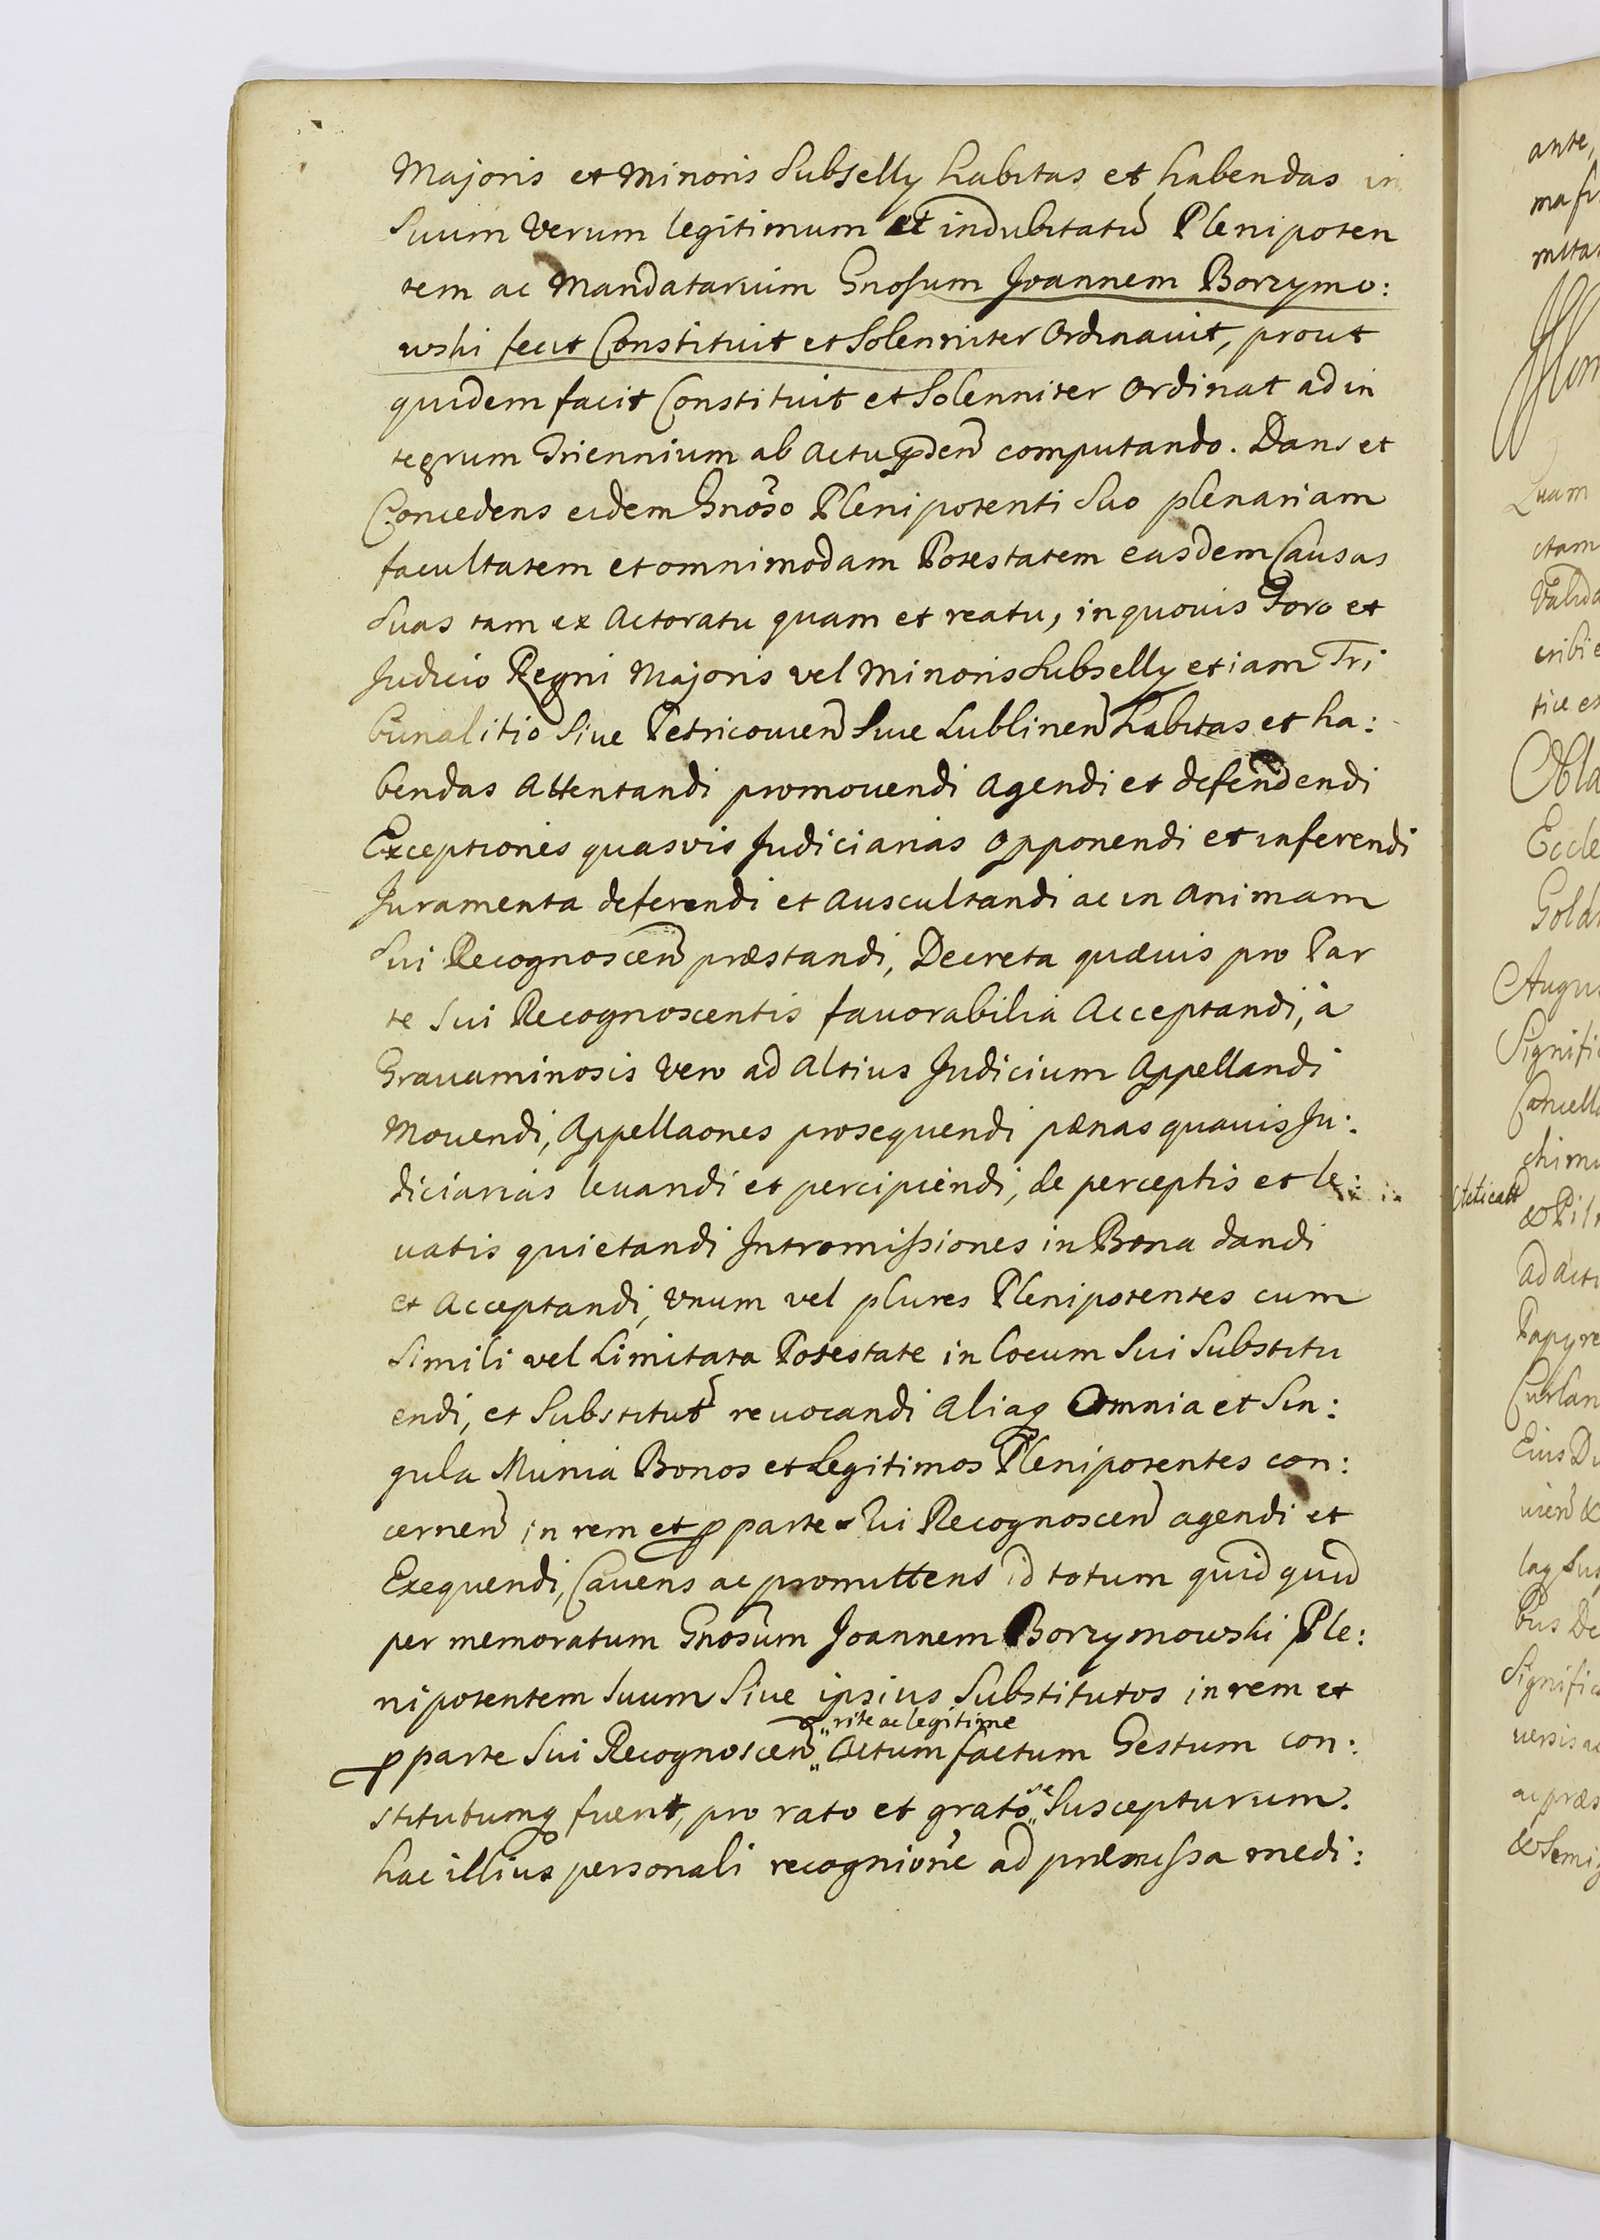 Majoris et Minoris Subselly habitas et habendas in
Suum Verum legitimum et indubitatũ Plenipoten
tem ac Mandatarium Gnosum Joannem Borzymo:
wski fecit Constituit et Solenniter Ordinavit, prout
quidem facit Constituit et Solenniter Ordinat ad in
tegrum Triennium ab Actu computando. Dans et
Concedens eidem Gnoso Plenipotenti Suo plenariam
facultatem et omnimodam Potestatem easdem Causas
Suas tam ex Actoratu quam et reatu, in quouis Foro et
Judicio Regni Majoris vel Minoris Subselly etiam Tri
bunalitio Siue Petricouien Siue Lublinen habitas et ha:
bendas Attentandi promouendi Agendi et defendendi
Exceptiones quasvis Judiciarias Opponendi et inferendi
Juramenta deferendi et Auscultandi ac in Animam
Sui Recognoscen præstandi, Decreta quævis pro Par
te Sui Recognoscentis fauorabilia Acceptandi, à
Grauaminosis Vero ad Altius Judicium Appellandi
Mouendi, Appellaones prosequendi pænas quauis Ju:
diciarias leuandi et percipiendi, de perceptis et le:
uatis quietandi Intromissiones in Bona dandi
et Acceptandi, Vnum vel plures Plenipotentes cum
Simili vel Limitata Potestate in locum Sui Substitu
endi, et Substitut reuocandi Aliaq Omnia et Sin:
gula Munia Bonos et Legitimos Plenipotentes con:
cernen in rem et p parte Sui Recognoscen agendi et
Exequendi, Cauens ac promittens id totum quidquid
per memoratum Gnosum Joannem Borzymowski Ple:
nipotentem Suum Siue ipsius Substitutos in rem et
rite ac legitime
p parte Sui Recognoscen Actum factum Gestum con:
stitutumq fuerit, pro rato et grato se Suscepturum.
hac illius personali recognione ad præmissa medi: